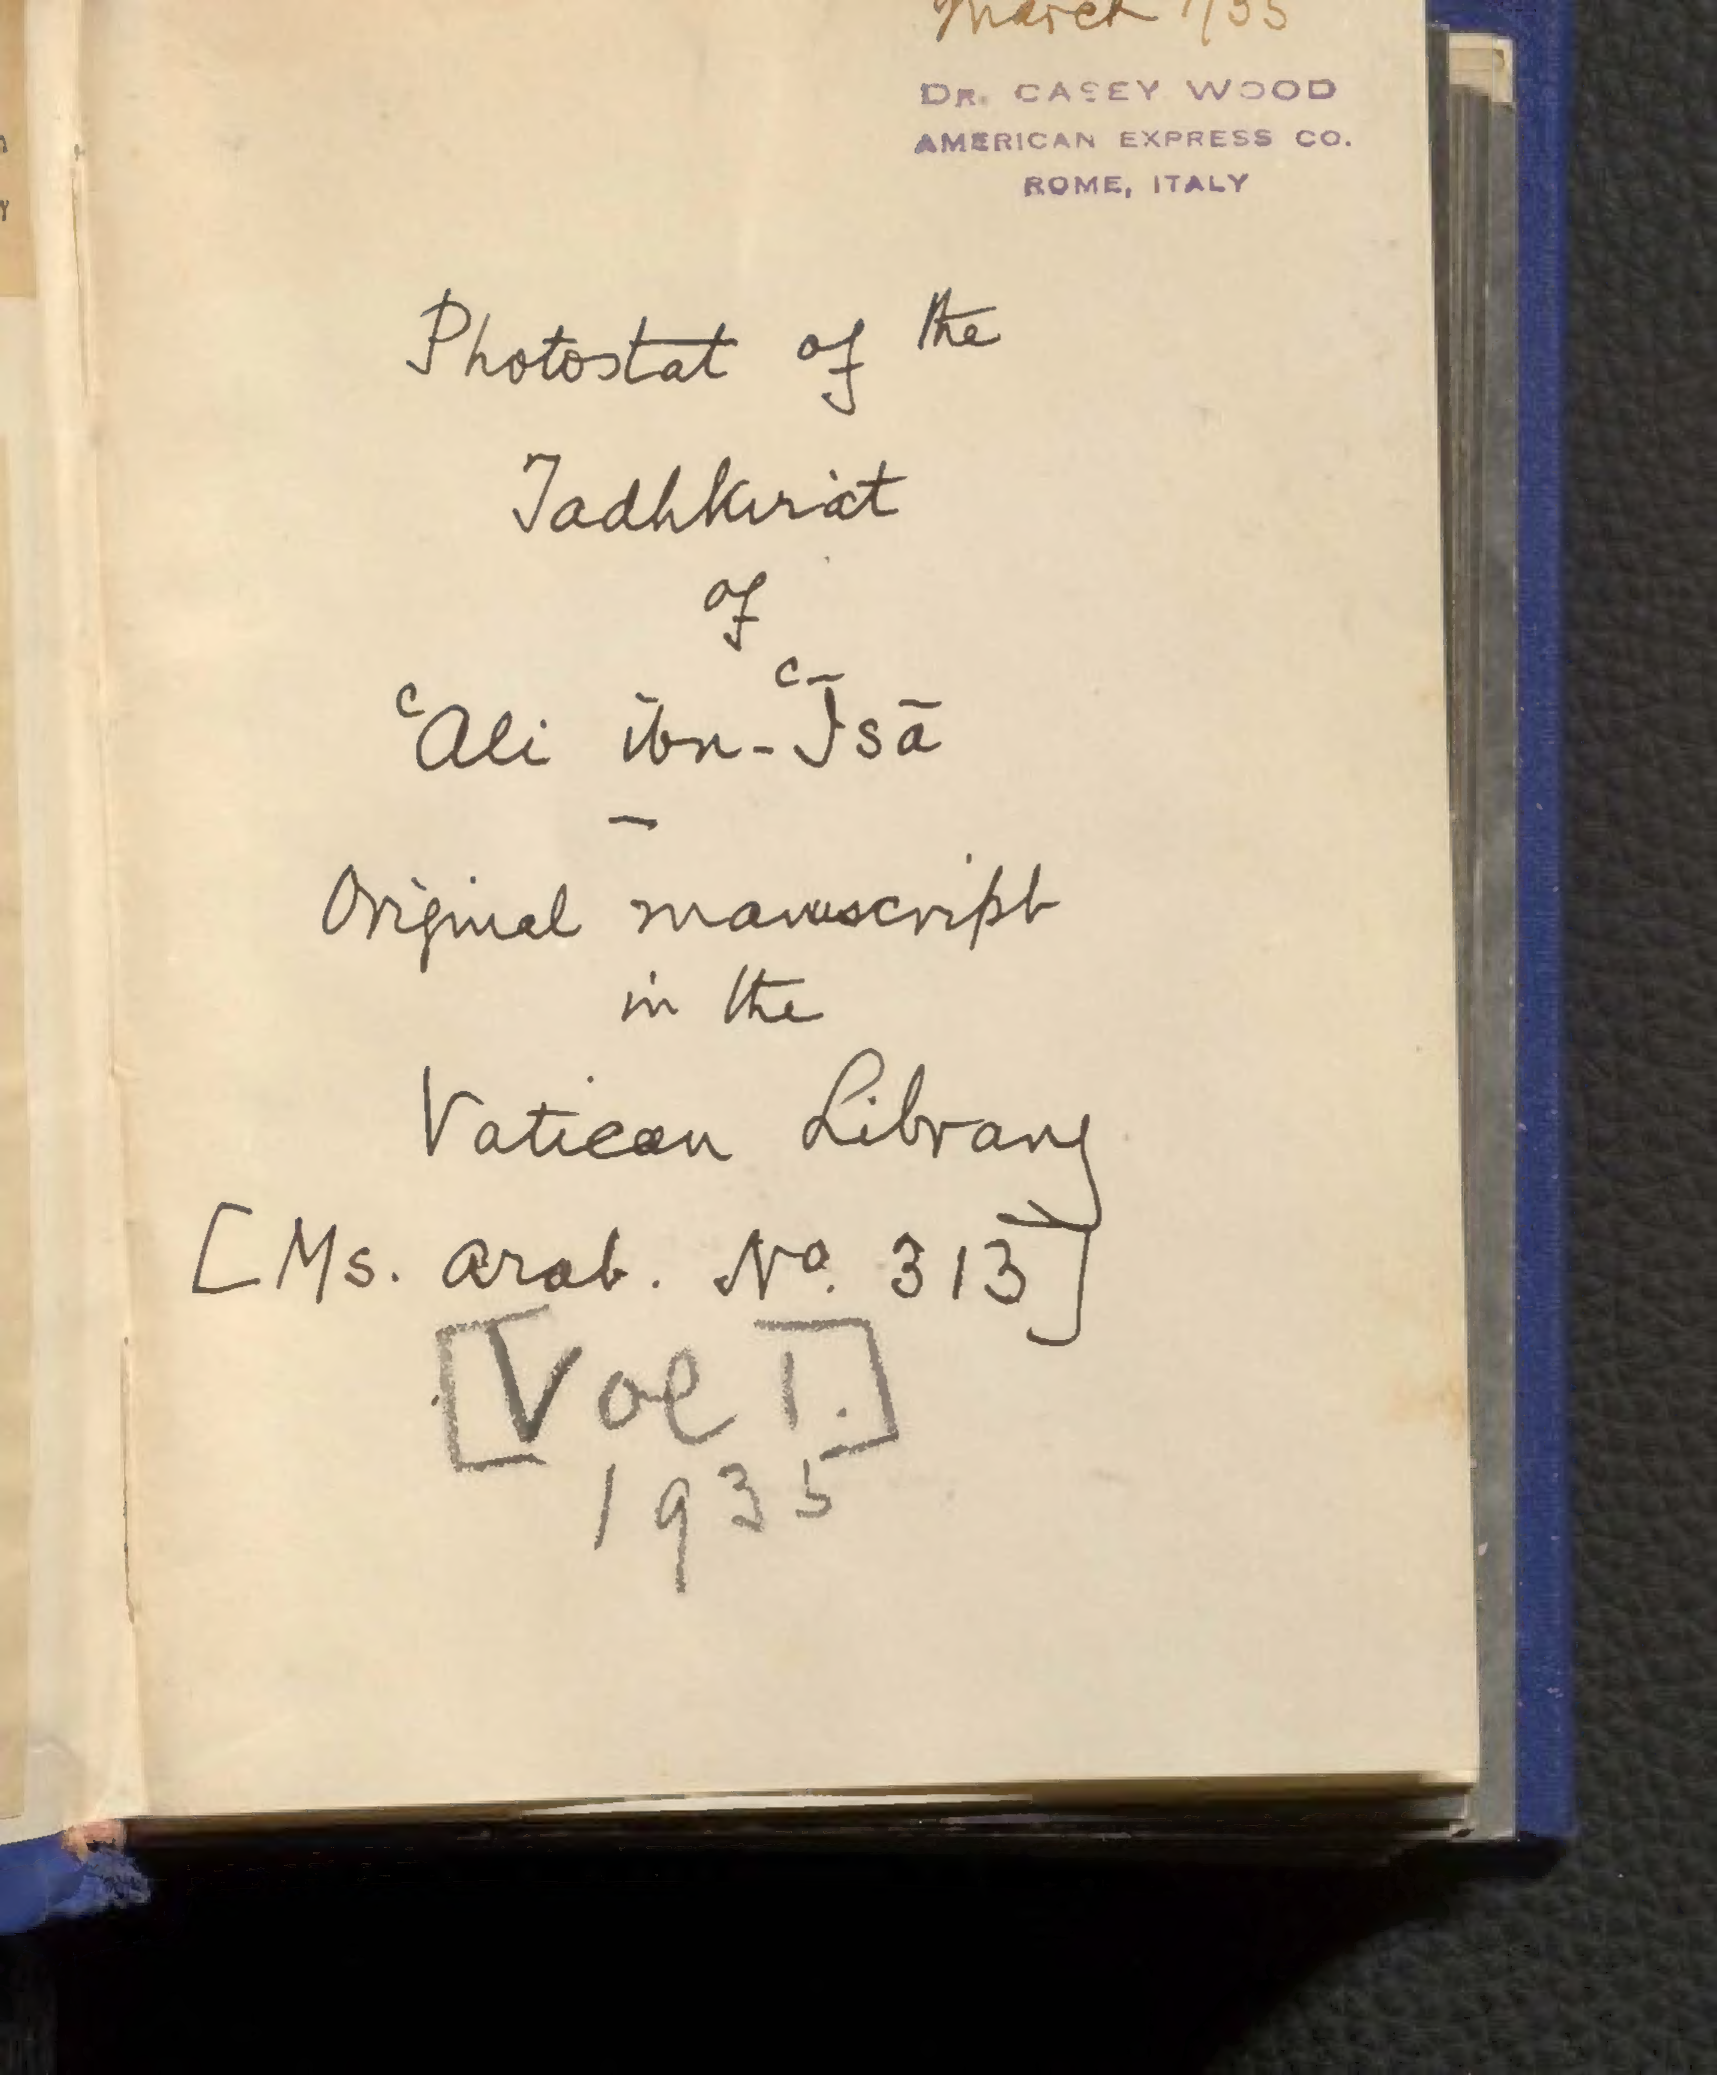 March 1/35
DR. CASEY WOOD
AMERICAN EXPRESS CO.
ROME, ITALY
Photostat of the
Tadhkirat
of
ʿAli ibn-ʿĪsā
Original manuscript
in the
Vatican Library
[Ms. arab. No. 313]
[Vol I.]
1935